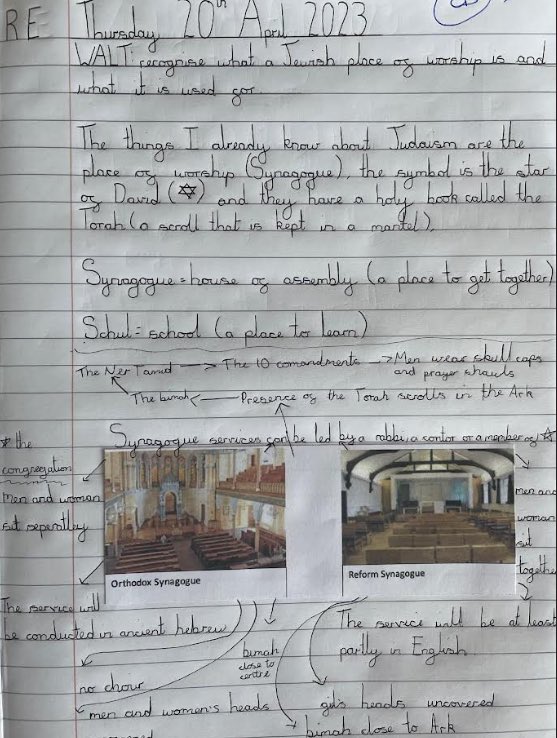 RE Thursday 20th April 2023
WALT: recognise what a Jewish place of worship is and
what it is used for.
The things I already know about Judaism are the
place of worship (Synagogue), the symbol is the star
of David (✡) and they have a holy book called the
Torah (a scroll that is kept in a mantel).
Synagogue = house of assembly (a place to get together)
Schul = school (a place to learn)
The Ner Tamid → The 10 comandments → Men wear skull caps
and prayer shauls
The bimah ← Presence of the Torah scrolls in the Ark
Synagogue services can be led by a rabbi, a cantor or a member of ☆
* the
congregation
Men and woman
sit seperatley
Orthodox Synagogue
Reform Synagogue
men and
woman
sit
together
The service will
be conducted in ancient hebrew
no chour
men and women's heads
bimah
close to
centre
The service will be at least
partly in English.
girls heads, uncovered
bimah close to Ark